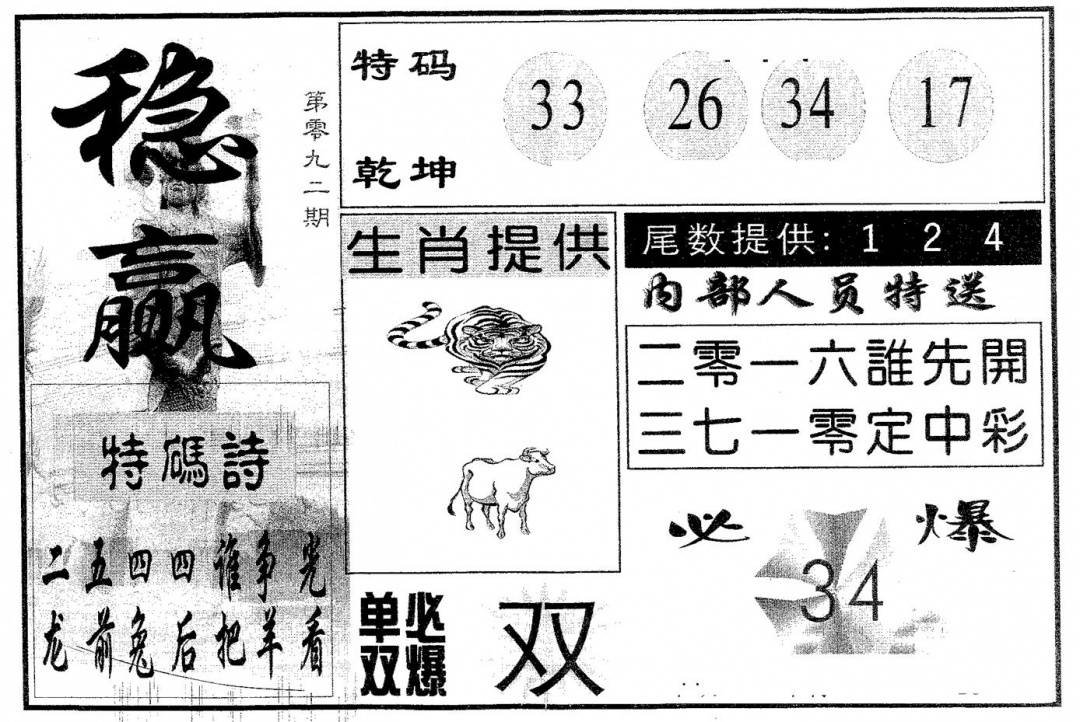 稳赢
第零九二期
特码
乾坤
33 26 34 17
生肖提供
尾数提供: 1 2 4
内部人员特送
二零一六誰先開
三七一零定中彩
特碼詩
二五四四谁争宪
龙前兔后把羊看
必爆
34
单双
必爆
双